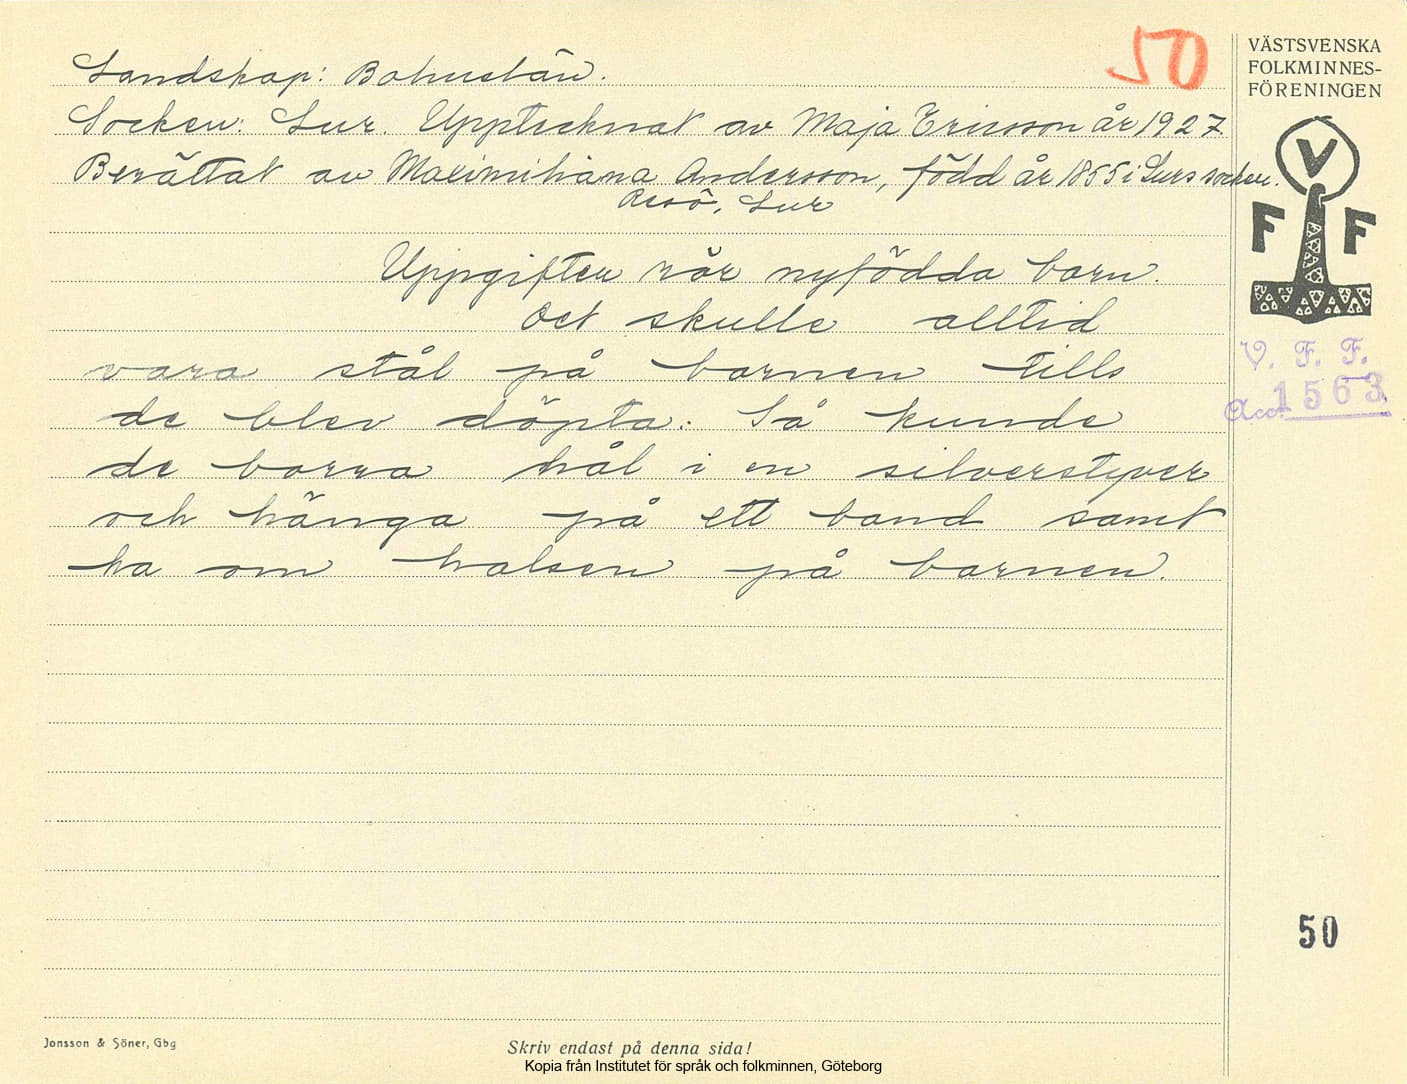 50
Landskap: Bohuslän.
Socken: Lur. Upptecknat av Maja Ericsson år 1927
Berättat av Maximiliana Andersson, född år 1855 i Lurs socken.
Resö, Lur
Uppgifter rör nyfödda barn.
Det skulle alltid
vara stål på barnen tills
de blev döpta. Så kunde
de borra hål i en silverstyver
och hänga på ett band samt
ha om halsen på barnen.
VÄSTSVENSKA
FOLKMINNES-
FÖRENINGEN
V
F F
V. F. F.
Acc. 1563
50
Jonsson & Söner, Gbg
Skriv endast på denna sida!
Kopia från Institutet för språk och folkminnen, Göteborg